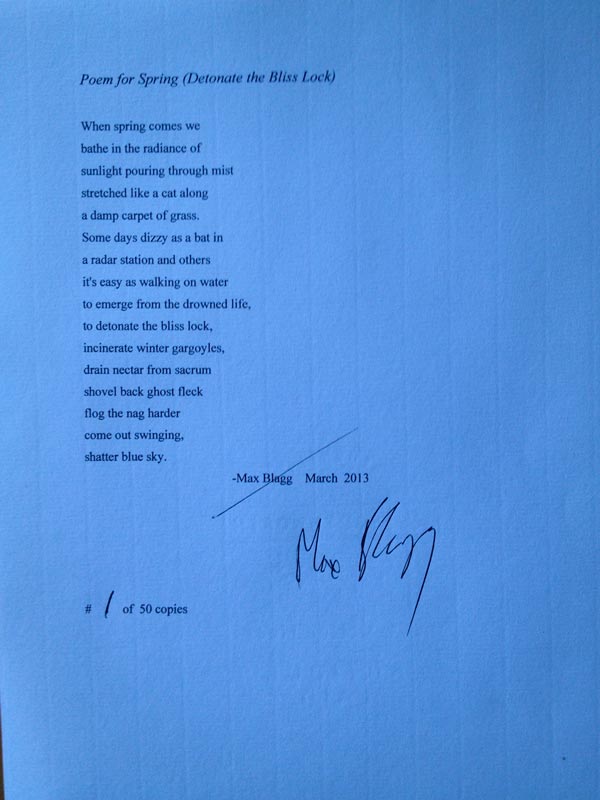 Poem for Spring (Detonate the Bliss Lock)
When spring comes we
bathe in the radiance of
sunlight pouring through mist
stretched like a cat along
a damp carpet of grass.
Some days dizzy as a bat in
a radar station and others
it's easy as walking on water
to emerge from the drowned life,
to detonate the bliss lock,
incinerate winter gargoyles,
drain nectar from sacrum
shovel back ghost fleck
flog the nag harder
come out swinging,
shatter blue sky.
-Max Blagg March 2013
Max Blagg
# 1 of 50 copies